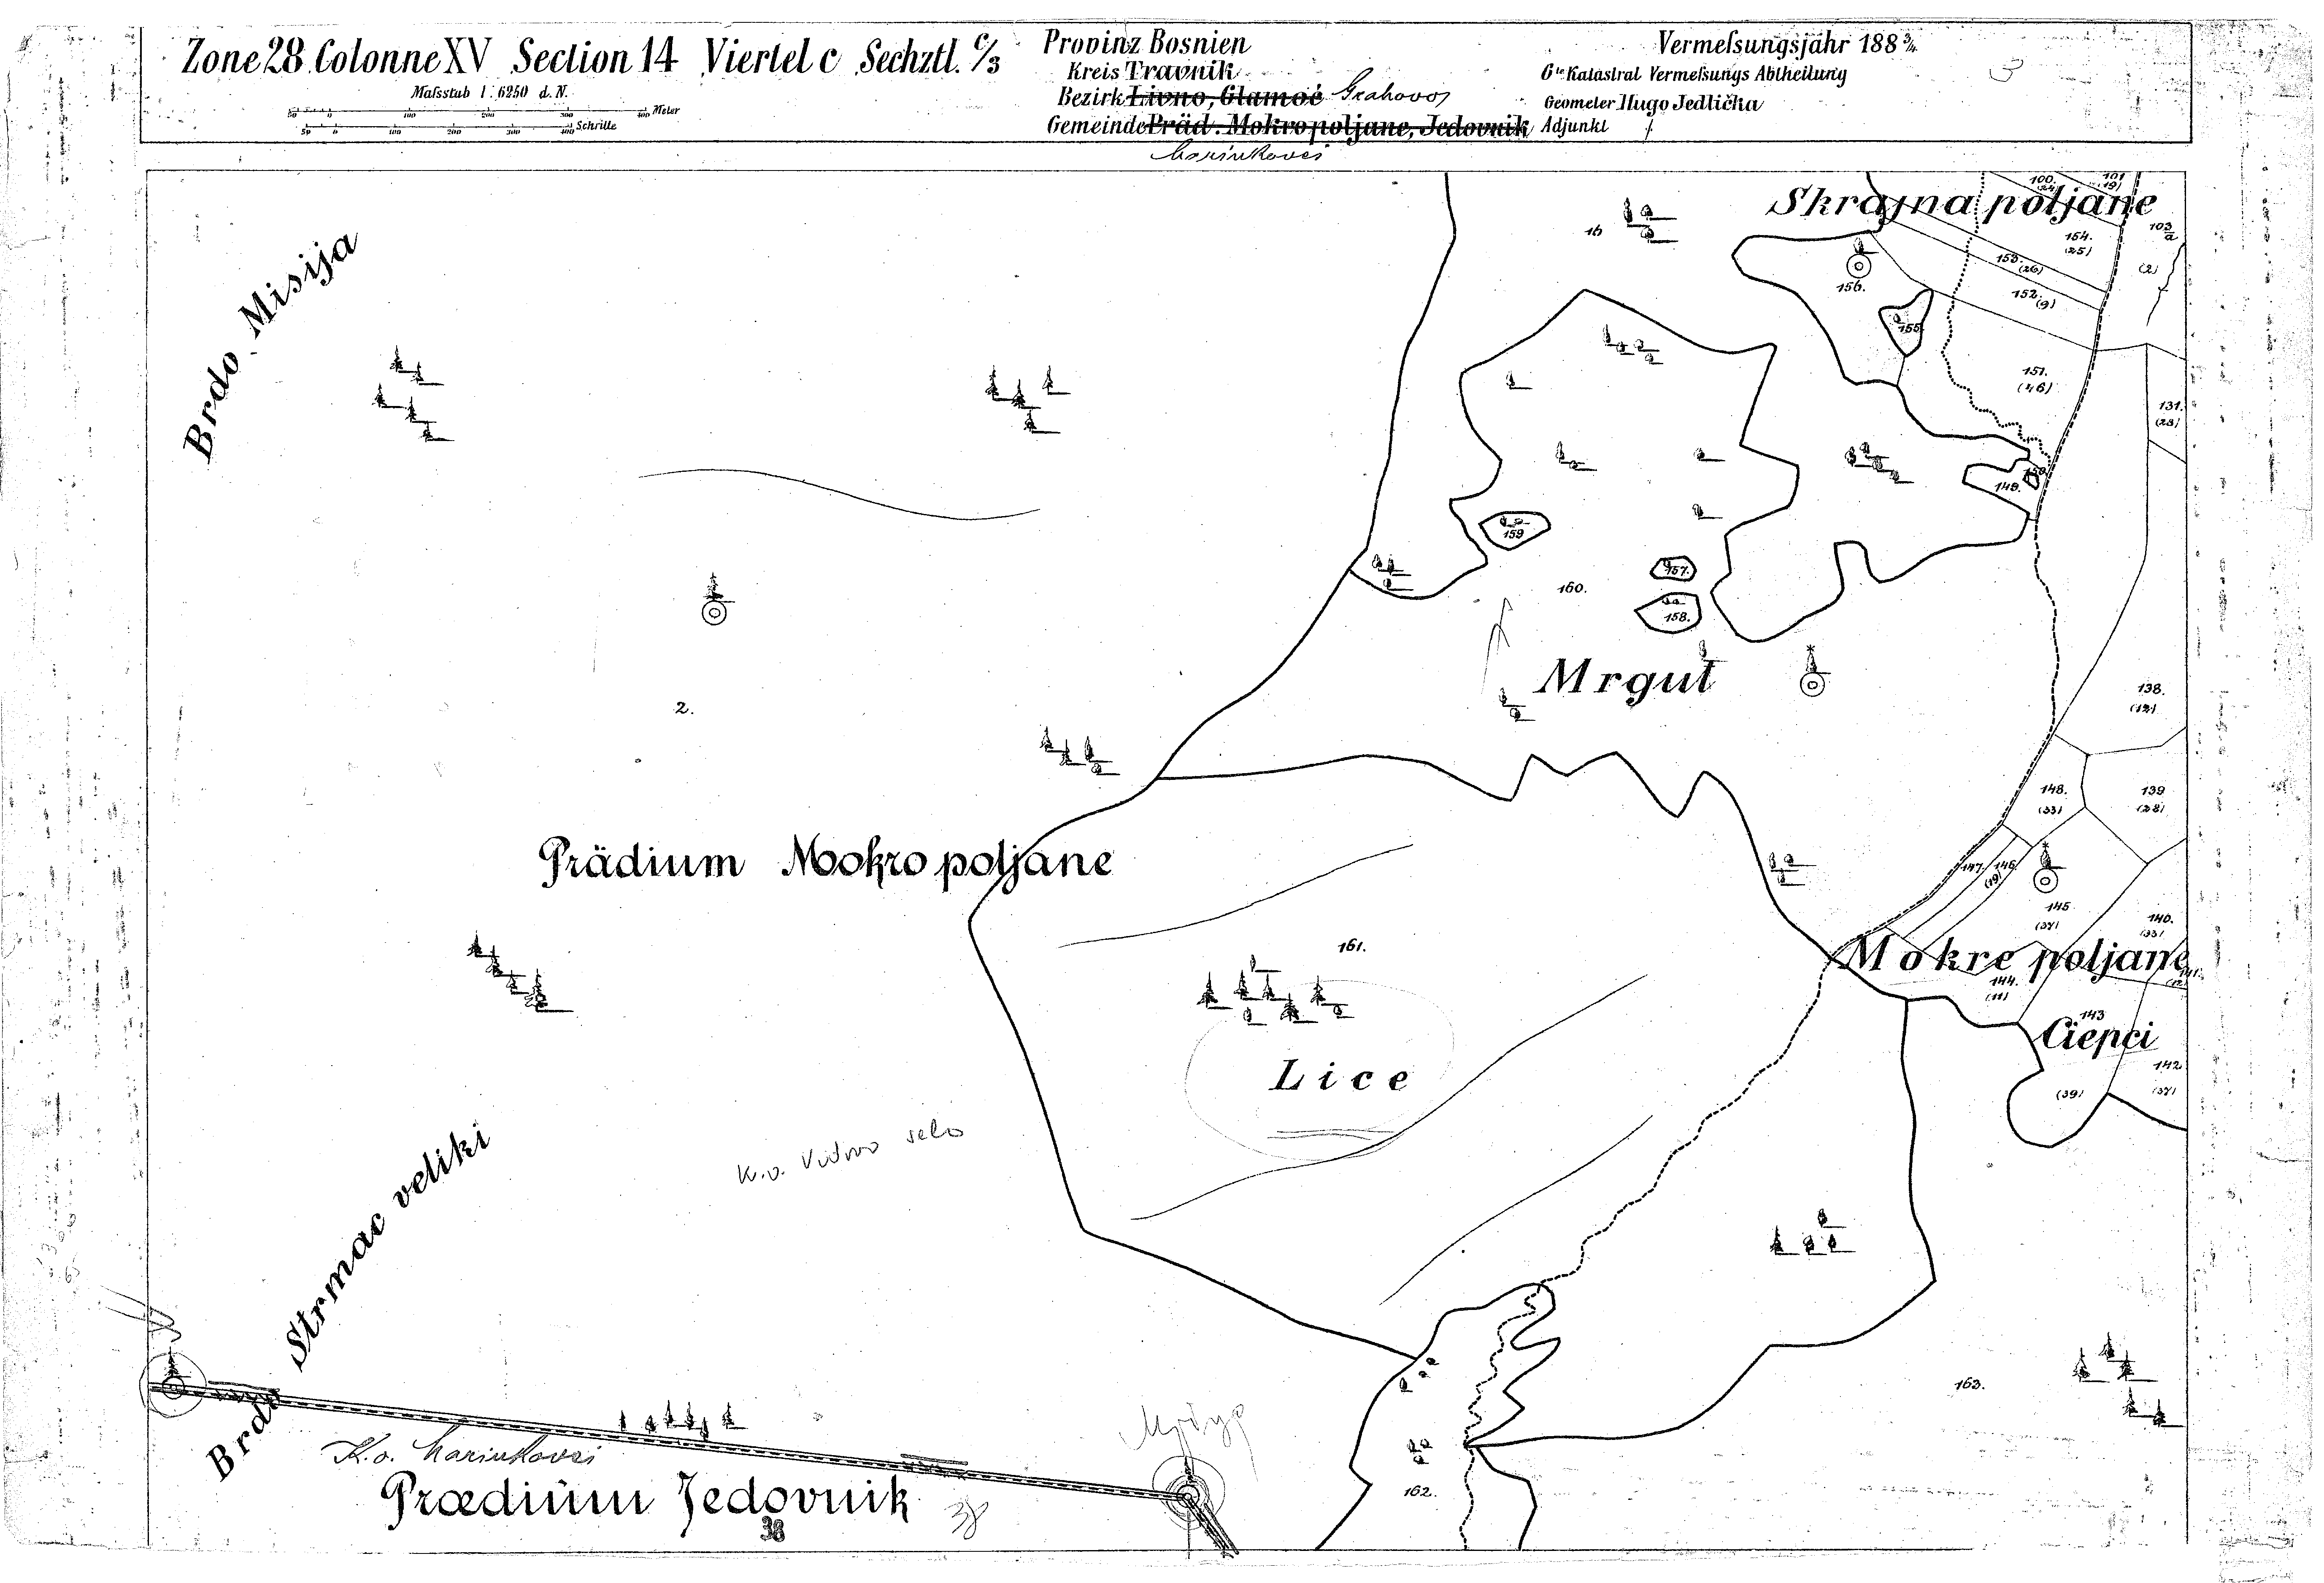 Zone 28 Colonne XV Section 14 Viertel c Sechztl. c/3
Maſsstub 1:6250 d. N.
50 0 100 200 300 400 Meter
50 0 100 200 300 400 Schritte
Provinz Bosnien
Kreis Travnik
Bezirk Livno, Glamoč Grahovo
Gemeinde Präd. Mokro poljane, Jedovnik
Marinkovci
Vermeſsungsjahr 188 3/4
6te Katastral Vermeſsungs Abtheilung
Geometer Hugo Jedlička
Adjunkt
Skrajna poljane
100.
(24)
101
(19)
103
a
(2)
154.
(25)
153.
(26)
152.
(9)
16
156.
155
151.
(46)
131.
(23)
Brdo Misija
149.
150
159
157.
158.
160.
Mrgut
2.
138.
(12)
148.
(33)
139
(28)
Prädium Mokro poljane
147.
146
(19)
145
(37)
140.
(33)
161.
Mokre poljane
141.
144.
(11)
143
Ciepci
142
(39)
(37)
Lice
K.o. Vidovo selo
Brdo Strmac veliki
163.
K.o. Marinkovci
Prædium Jedovnik
38
162.